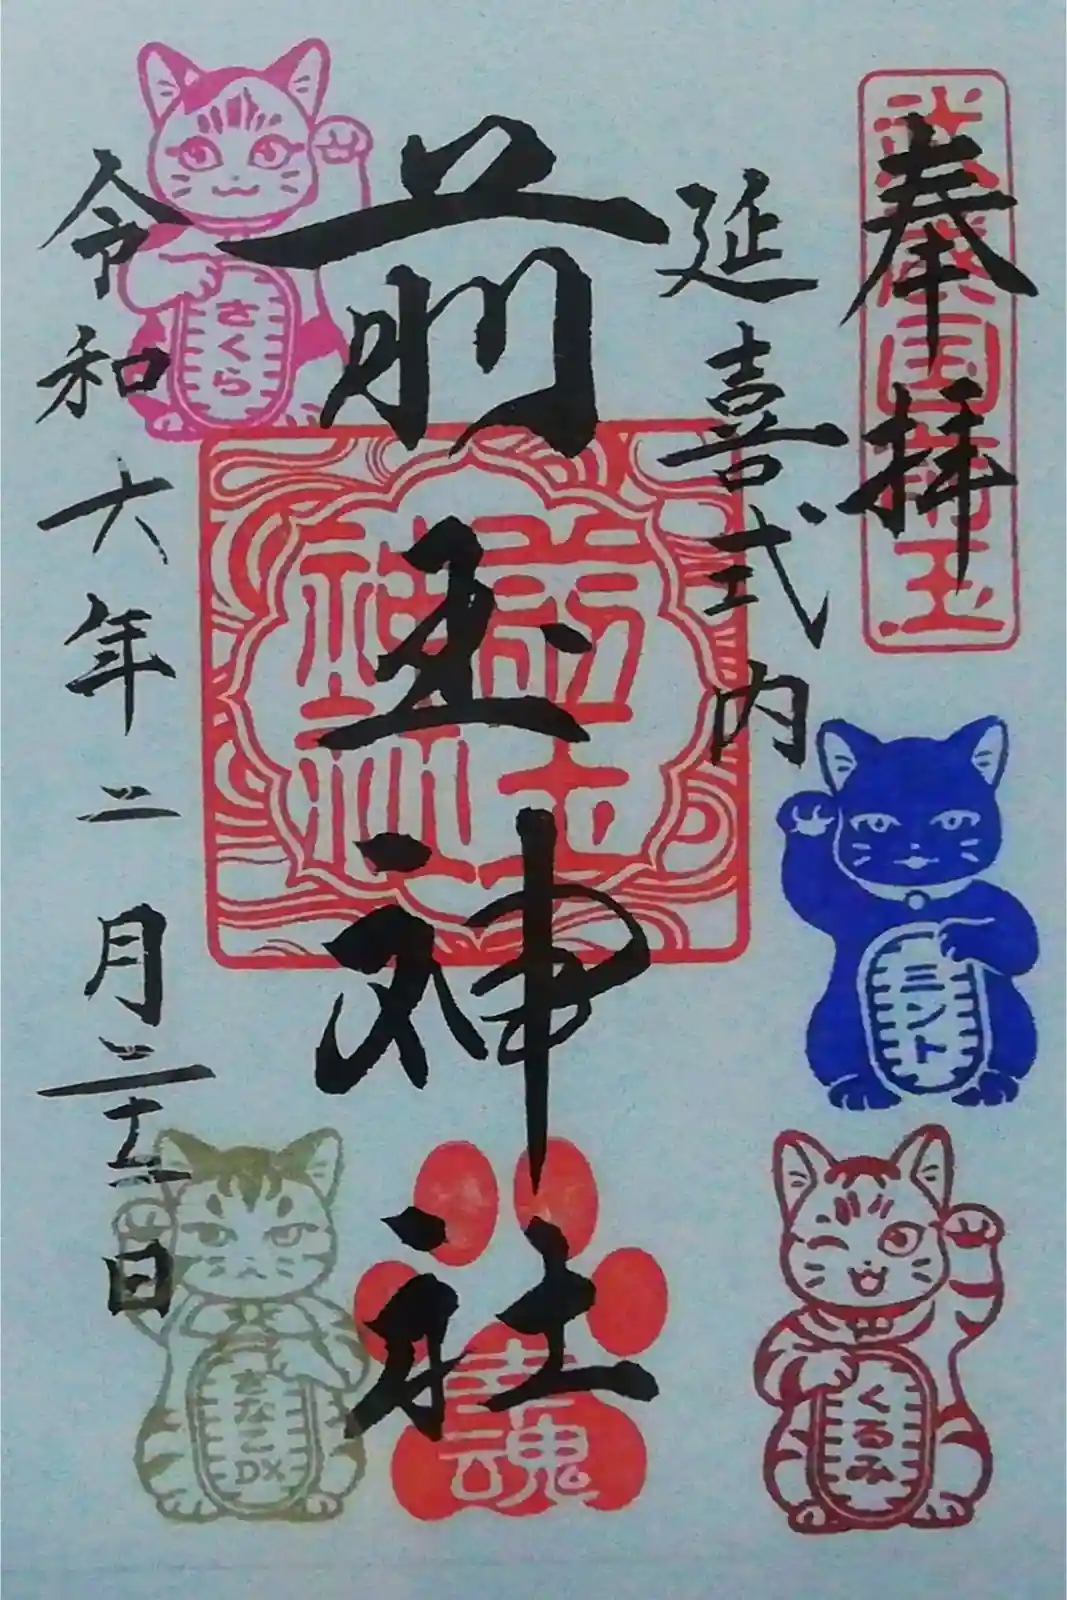 奉拝
武蔵国埼玉
延喜式内
前玉神社
前玉
神社
令和六年二月二十二日
さくら
ミント
きなこ
DX
幸魂
くるみ